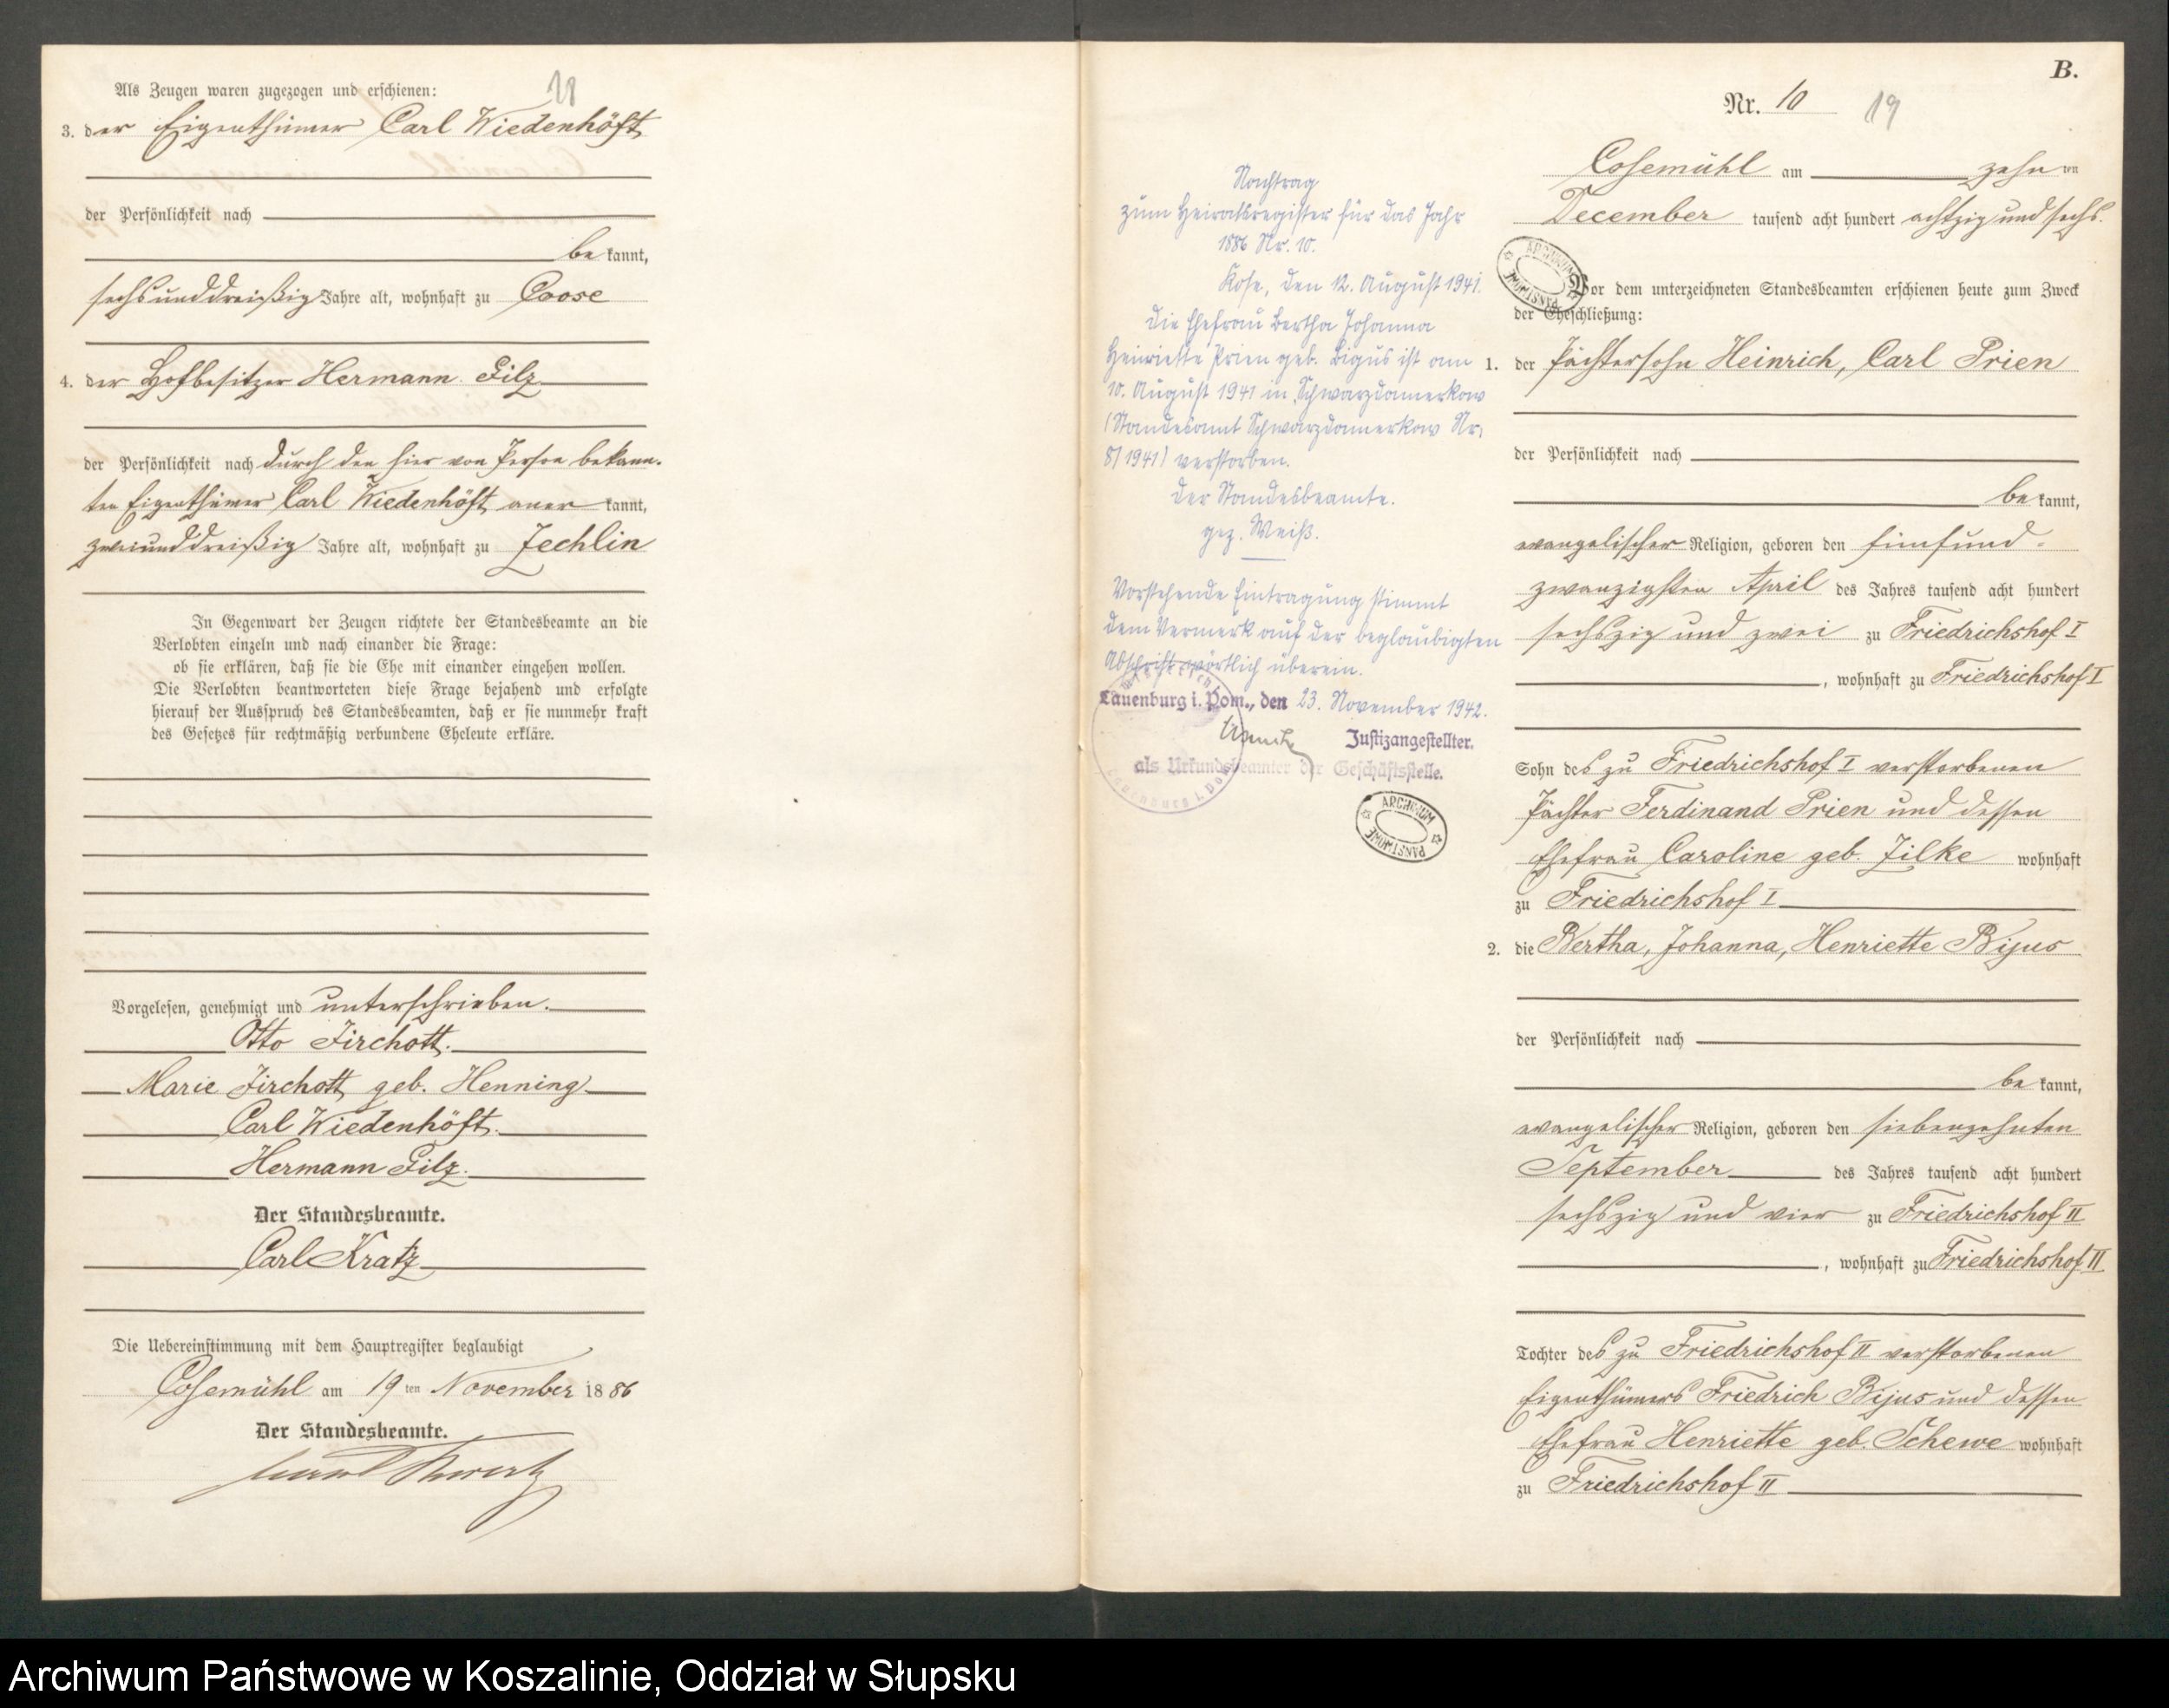 18
Als Zeugen waren zugezogen und erschienen:
3. der Eigenthümer Carl Wiedenhöft
der Persönlichkeit nach
be kannt,
sechsunddreißig Jahre alt, wohnhaft zu Coose
4. der Hofbesitzer Hermann Pilz
der Persönlichkeit nach durch den hier von Person bekann-
ten Eigenthümer Carl Wiedenhöft aner kannt,
zweiunddreißig Jahre alt, wohnhaft zu Jechlin
In Gegenwart der Zeugen richtete der Standesbeamte an die
Verlobten einzeln und nach einander die Frage:
ob sie erklären, daß sie die Ehe mit einander eingehen wollen.
Die Verlobten beantworteten diese Frage bejahend und erfolgte
hierauf der Ausspruch des Standesbeamten, daß er sie nunmehr kraft
des Gesetzes für rechtmäßig verbundene Eheleute erkläre.
Vorgelesen, genehmigt und unterschrieben.
Otto Jirchott.
Marie Jirchott geb. Henning
Carl Wiedenhöft.
Hermann Pilz.
Der Standesbeamte.
Carl Kratz
Die Uebereinstimmung mit dem Hauptregister beglaubigt
Cosemühl am 19 ten November 18 86
Der Standesbeamte.
Nachtrag
zum Heiratsregister für das Jahr
1886 Nr. 10.
Kose, den 12. August 1941.
Die Ehefrau Bertha Johanna
Henriette Prien geb. Bigus ist am
10. August 1941 in Schwarzdamerkow
(Standesamt Schwarzdamerkow Nr.
8/1941) verstorben.
Der Standesbeamte.
gez. Weiß.
Vorstehende Eintragung stimmt
dem Vermerk auf der beglaubigten
Abschrift wörtlich überein.
Lauenburg i. Pom., den 23. November 1942.
Justizangestellter.
als Urkundsbeamter der Geschäftsstelle.
ARCHIWUM PAŃSTWOWE
B.
Nr. 10 19
Cosemühl am zehn ten
December tausend acht hundert achtzig und sechs.
ARCHIWUM PAŃSTWOWE
Vor dem unterzeichneten Standesbeamten erschienen heute zum Zweck
der Eheschließung:
1. der Pächtersohn Heinrich, Carl Prien
der Persönlichkeit nach
be kannt,
evangelischer Religion, geboren den fünfund-
zwanzigsten April des Jahres tausend acht hundert
sechszig und zwei zu Friedrichshof I
, wohnhaft zu Friedrichshof I
Sohn des zu Friedrichshof I verstorbenen
Pächter Ferdinand Prien und dessen
Ehefrau Caroline geb. Zilke wohnhaft
zu Friedrichshof I
2. die Bertha, Johanna, Henriette Bijus
der Persönlichkeit nach
be kannt,
evangelischer Religion, geboren den siebenzehnten
September des Jahres tausend acht hundert
sechszig und vier zu Friedrichshof II
, wohnhaft zu Friedrichshof II
Tochter des zu Friedrichshof II verstorbenen
Eigenthümers Friedrich Bijus und dessen
Ehefrau Henriette geb. Schewe wohnhaft
zu Friedrichshof II
Archiwum Państwowe w Koszalinie, Oddział w Słupsku